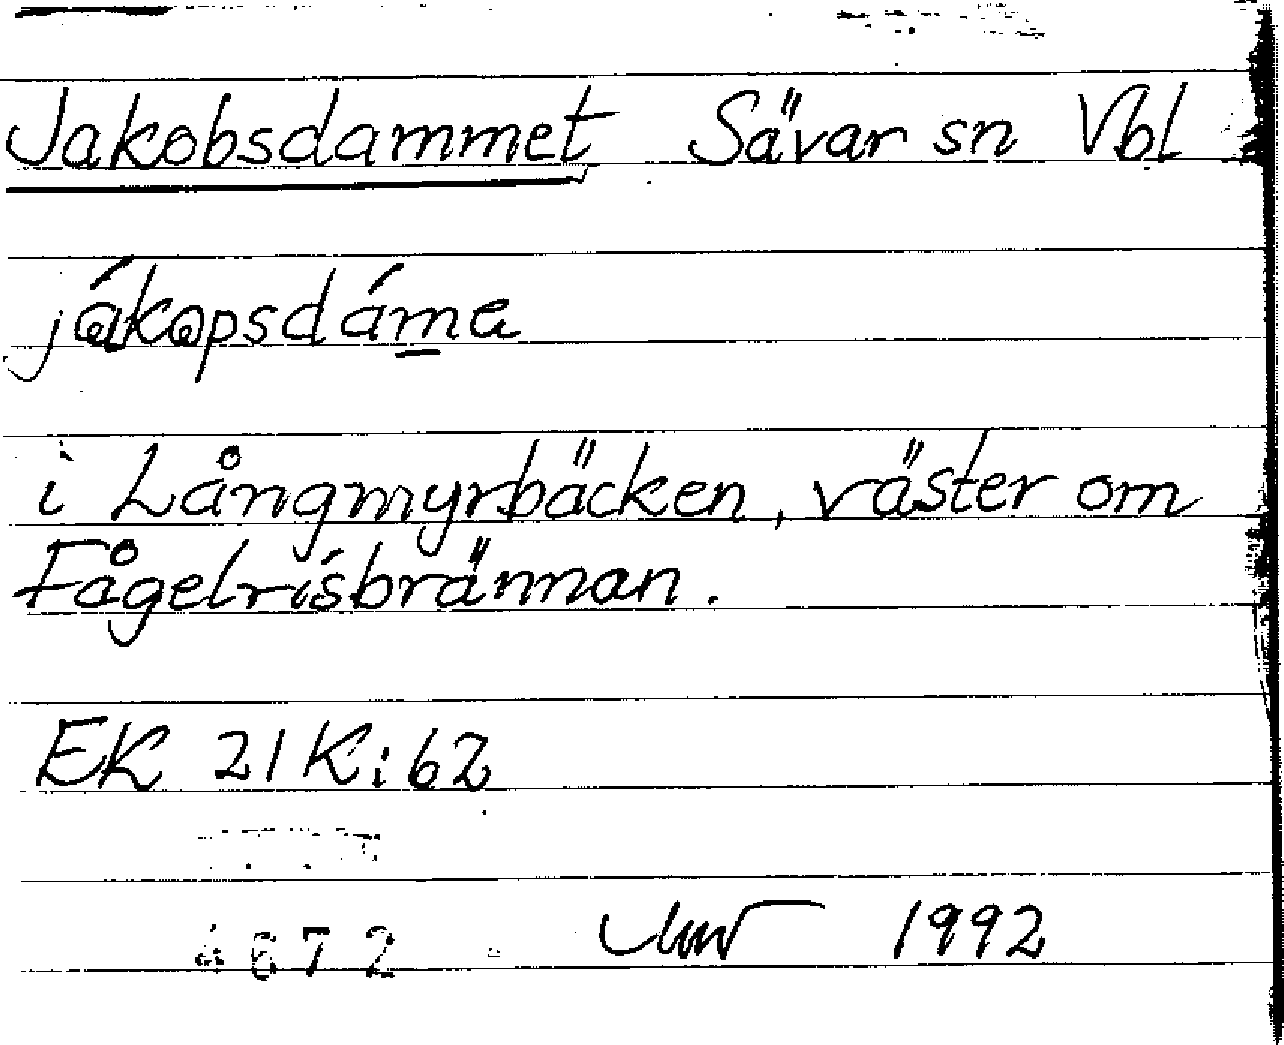 Jakobsdammet Sävar sn Vbl
jákopsdám̲e
i Långmyrbäcken, väster om
Fågelrisbrännan.
EK 21K:62
4672 1992